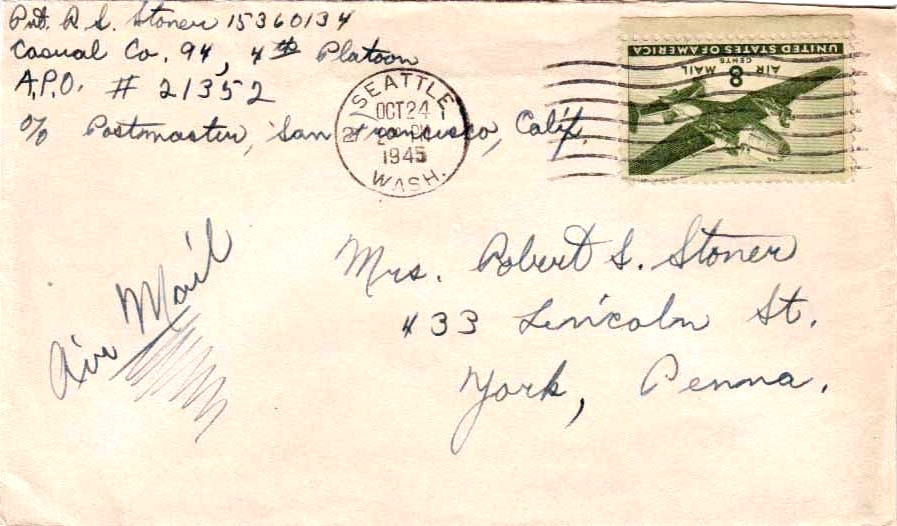 Pvt. R. S. Stoner 15360134
Casual Co. 94, 4th Platoon
A.P.O. # 21352
c/o Postmaster, San Francisco, Calif.
SEATTLE
OCT 24
1945
WASH.
UNITED STATES OF AMERICA
AIR 8 MAIL
CENTS
Air Mail
Mrs. Robert S. Stoner
433 Lincoln St.
York, Penna.